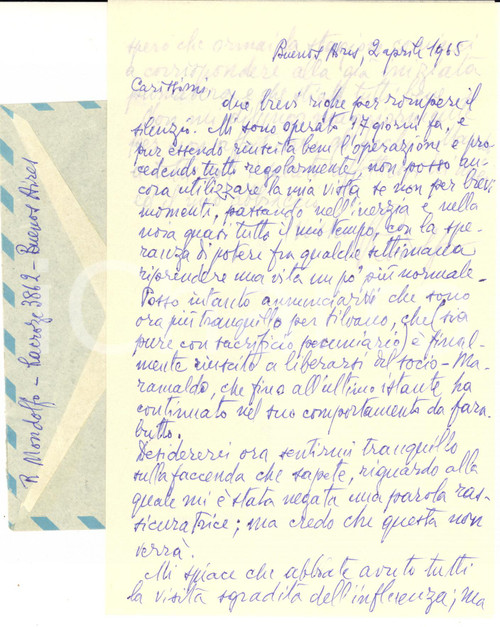 Buenos Aires, 2 aprile 1965
Carissimi,
due brevi righe per rompere il
silenzio. Mi sono operato 17 giorni fa, e
pur essendo riuscita bene l'operazione e pro-
cedendo tutto regolarmente, non posso an-
cora utilizzare la mia vista se non per brevi
momenti, passando nell'inerzia e nella
noia quasi tutto il mio tempo, con la spe-
ranza di potere fra qualche settimana
riprendere una vita un po' più normale.-
Posso intanto annunciarvi che sono
ora più tranquillo per Silvano, che (sia
pure con sacrificio pecuniario) è final-
mente riuscito a liberarsi del socio-Ma-
ramaldo, che fino all'ultimo istante ha
continuato nel suo comportamento da fara-
butto.
Desidererei ora sentirmi tranquillo
sulla faccenda che sapete, riguardo alla
quale mi è stata negata una parola ras-
sicuratrice; ma credo che questa non
verrà.
Mi spiace che abbiate avuto tutti
la visita sgradita dell'influenza; ma
R. Mondolfo - Lacroze 3862 - Buenos Aires